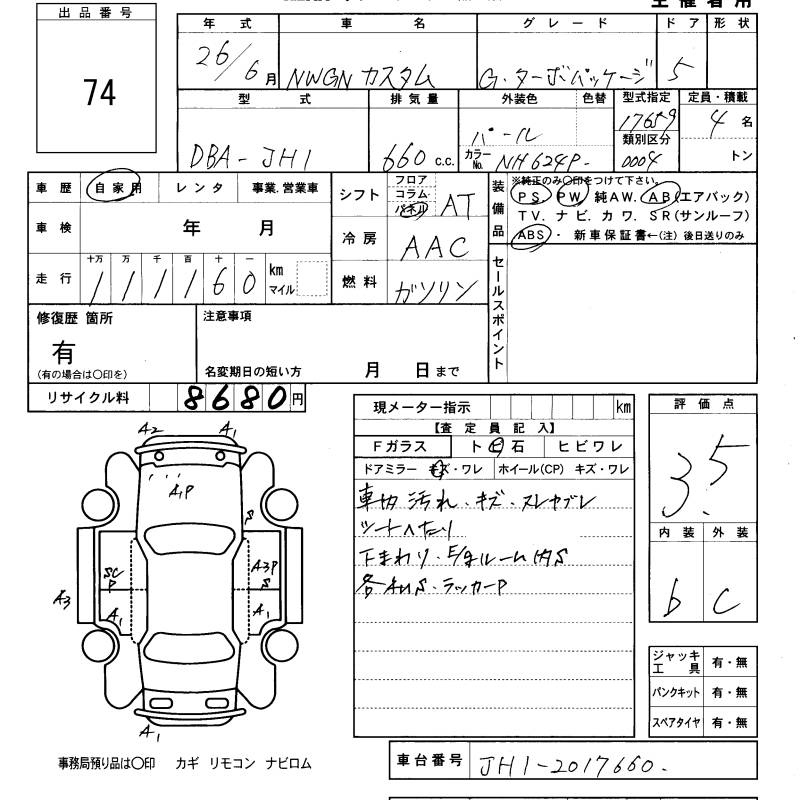 主催者用
出品番号
74
年式 車名 グレード ドア 形状
26/6月 NWGN カスタム G・ターボパッケージ 5
型式 排気量 外装色 色替 型式指定 定員・積載
DBA-JH1 660 c.c. パール 17659 4名
カラーNo. NH624P. 類別区分 0004 トン
車歴 自家用 レンタ 事業.営業車
車検 年 月
走行 十万 万 千 百 十 一
111160 km マイル
シフト フロア コラム パネル AT
冷房 AAC
燃料 ガソリン
装備品 ※純正のみ〇印をつけて下さい。
PS. PW 純AW. AB(エアバック)
TV. ナビ. カワ. SR(サンルーフ)
ABS・新車保証書←(注)後日送りのみ
セールスポイント
修復歴 箇所
有
(有の場合は〇印を)
注意事項
名変期日の短い方 月 日まで
リサイクル料 8680円
現メーター指示 km
【査定員記入】
Fガラス ト ビ 石 ヒビワレ
ドアミラー キズ・ワレ ホイール(CP) キズ・ワレ
車内 汚れ・キズ・スレヤブレ
シートへたり
下まわり.E/gルーム内S
各AUS・ラッカーP
評価点
3.5
内装 外装
b C
A2 A1
A1P
S
SC P
A3P S
A3
A1 A1
A1
ジャッキ工具 有・無
パンクキット 有・無
スペアタイヤ 有・無
事務局預り品は〇印 カギ リモコン ナビロム
車台番号 JH1-2017660.